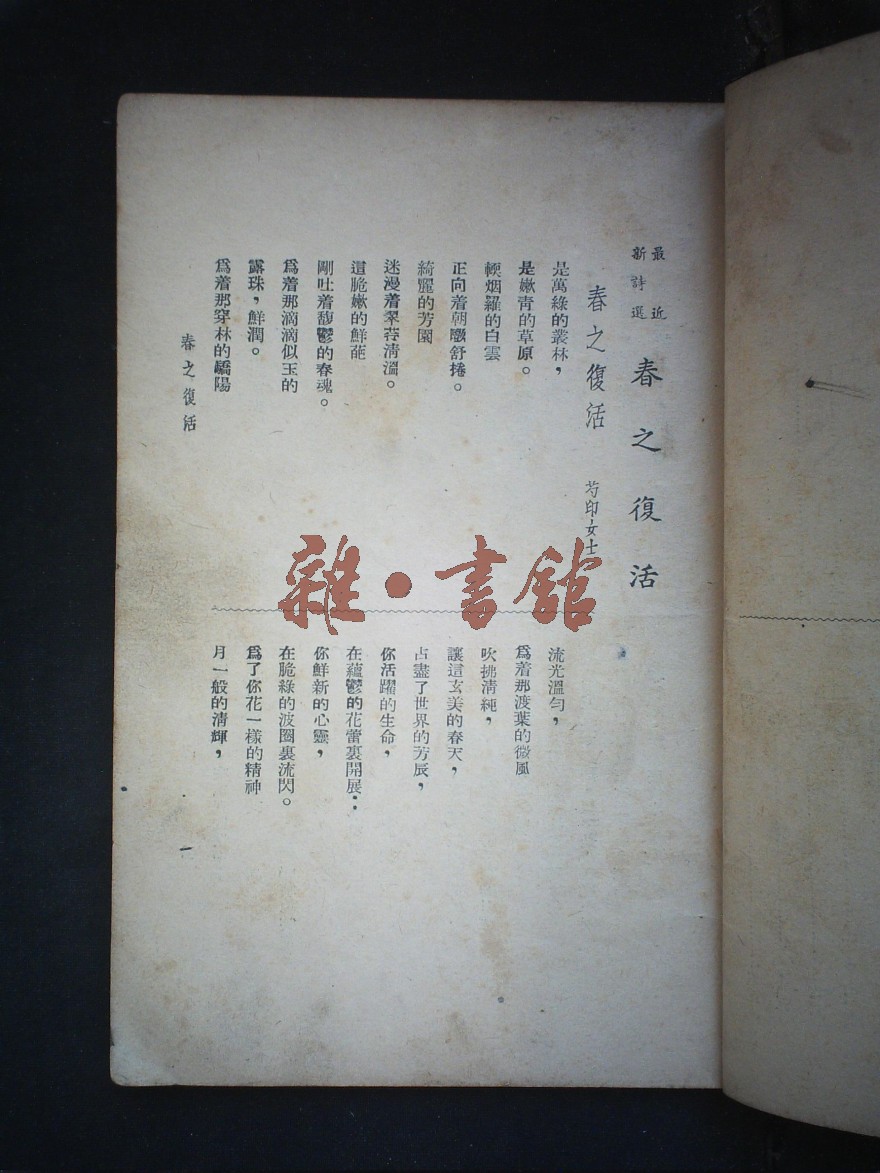 最近
新詩選
春之復活
春之復活
芍印女士
是萬綠的叢林，
是嫩青的草原。
輭烟羅的白雲
正向着朝曦舒捲。
綺麗的芳園
迷漫着翠荇清溫。
這脆嫩的鮮葩
剛吐着馥鬱的春魂。
爲着那滴滴似玉的
露珠，鮮潤。
爲着那穿林的驕陽
流光溫勻，
爲着那渡葉的微風
吹拂淸純，
讓這玄美的春天，
占盡了世界的芳辰，
你活躍的生命，
在蘊鬱的花蕾裏開展：
你鮮新的心靈，
在脆綠的波圈裏流閃。
爲了你花一樣的精神
月一般的清輝，
春之復活
一
雜·書館